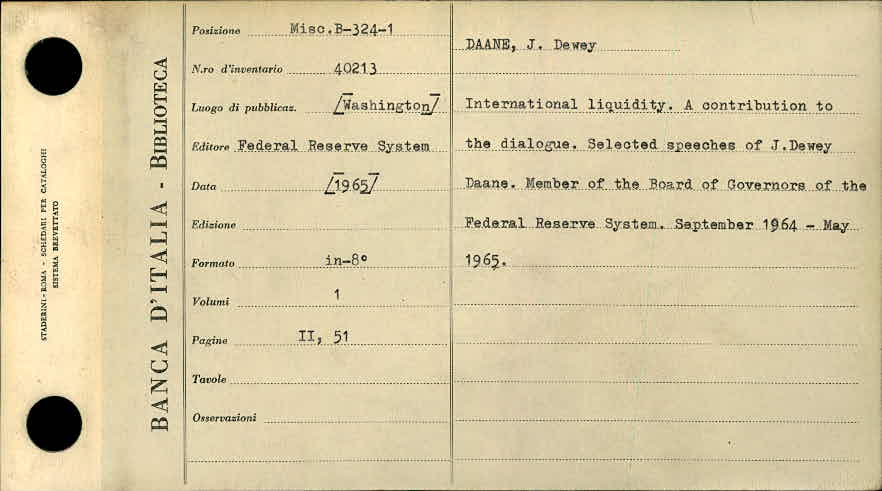 STADERINI - ROMA - SCHEDARI PER CATALOGHI
SISTEMA BREVETTATO
BANCA D'ITALIA - BIBLIOTECA
Posizione Misc.B-324-1
N.ro d'inventario 40213
Luogo di pubblicaz. /Washington/
Editore Federal Reserve System
Data /1965/
Edizione
Formato in-8°
Volumi 1
Pagine II, 51
Tavole
Osservazioni
DAANE, J. Dewey
International liquidity. A contribution to
the dialogue. Selected speeches of J.Dewey
Daane. Member of the Board of Governors of the
Federal Reserve System. September 1964 - May
1965.